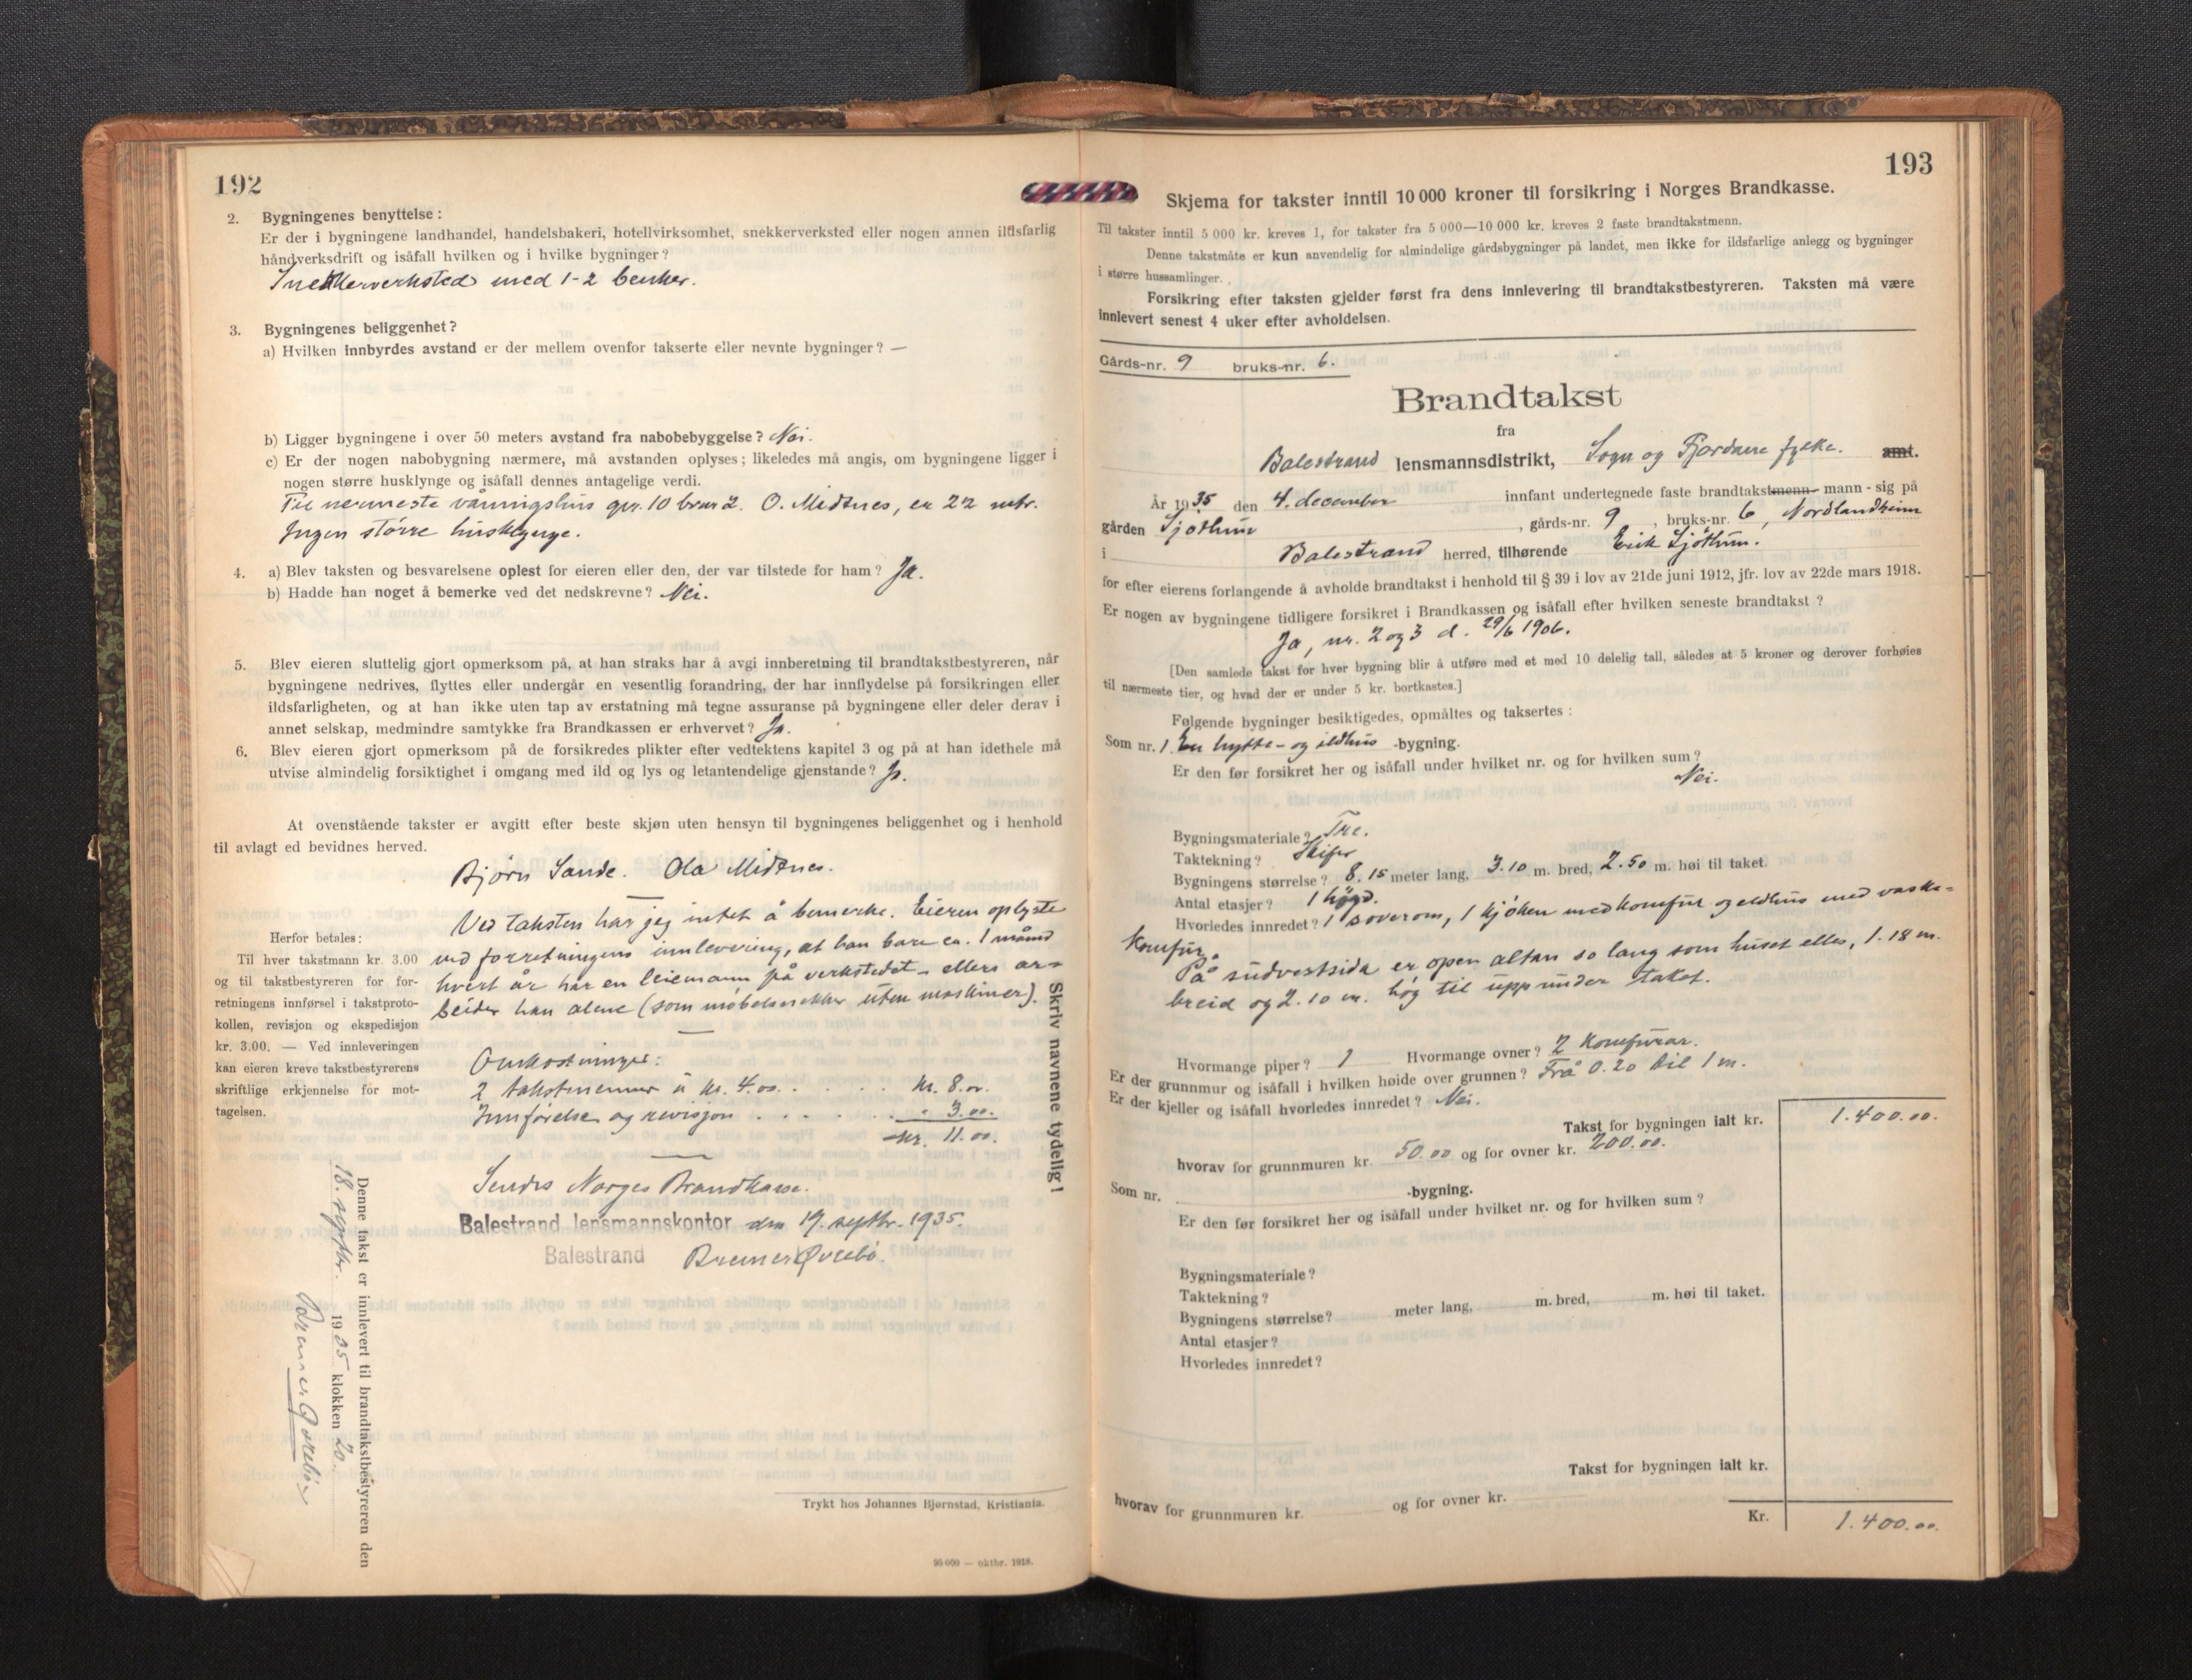 192
2. Bygningenes benyttelse:
Er der i bygningene landhandel, handelsbakeri, hotellvirksomhet, snekkerverksted eller nogen annen ildsfarlig
håndverksdrift og isåfall hvilken og i hvilke bygninger?
Snekkerverksted med 1-2 benker.
3. Bygningenes beliggenhet?
a) Hvilken innbyrdes avstand er der mellem ovenfor takserte eller nevnte bygninger? —
b) Ligger bygningene i over 50 meters avstand fra nabobebyggelse? Nei.
c) Er der nogen nabobygning nærmere, må avstanden oplyses; likeledes må angis, om bygningene ligger i
nogen større husklynge og isåfall dennes antagelige verdi.
Til nermeste våningshus gnr. 10 bnr 2. O. Midtnes, er 22 mtr.
Ingen større husklynge.
4. a) Blev taksten og besvarelsene oplest for eieren eller den, der var tilstede for ham? Ja.
b) Hadde han noget å bemerke ved det nedskrevne? Nei.
5. Blev eieren sluttelig gjort opmerksom på, at han straks har å avgi innberetning til brandtakstbestyreren, når
bygningene nedrives, flyttes eller undergår en vesentlig forandring, der har innflydelse på forsikringen eller
ildsfarligheten, og at han ikke uten tap av erstatning må tegne assuranse på bygningene eller deler derav i
annet selskap, medmindre samtykke fra Brandkassen er erhvervet? Ja.
6. Blev eieren gjort opmerksom på de forsikredes plikter efter vedtektens kapitel 3 og på at han idethele må
utvise almindelig forsiktighet i omgang med ild og lys og letantendelige gjenstande? Ja.
At ovenstående takster er avgitt efter beste skjøn uten hensyn til bygningenes beliggenhet og i henhold
til avlagt ed bevidnes herved.
Bjørn Sande. Ola Midtnes.
Ved taksten har jeg intet å bemerke. Eieren oplyste
ved forretningens innlevering, at han bare ca. 1 månd
hvert år har en leiemann på verkstedet - ellers ar=
beider han alene (som møbelsnekker uten maskiner).
Herfor betales:
Til hver takstmann kr. 3.00
og til takstbestyreren for for-
retningens innførsel i takstproto-
kollen, revisjon og ekspedisjon
kr. 3.00. — Ved innleveringen
kan eieren kreve takstbestyrerens
skriftlige erkjennelse for mot-
tagelsen.
Omkostninger:
2 takstmenner à kr. 4.00. . . . . kr. 8.00.
Innførelse og revisjon . . . . . " 3.00.
kr. 11.00.
Sendes Norges Brandkasse.
Balestrand lensmannskontor den 19. septbr. 1935.
Balestrand Bremer Øvrebø.
Skriv navnene tydelig!
Denne takst er innlevert til brandtakstbestyreren den
18. septbr. 1935 klokken 20.
Bremer Øvrebø
Trykt hos Johannes Bjørnstad, Kristiania.
95 000 — oktbr. 1918.
193
Skjema for takster inntil 10 000 kroner til forsikring i Norges Brandkasse.
Til takster inntil 5 000 kr. kreves 1, for takster fra 5 000—10 000 kr. kreves 2 faste brandtakstmenn.
Denne takstmåte er kun anvendelig for almindelige gårdsbygninger på landet, men ikke for ildsfarlige anlegg og bygninger
i større hussamlinger.
Forsikring efter taksten gjelder først fra dens innlevering til brandtakstbestyreren. Taksten må være
innlevert senest 4 uker efter avholdelsen.
Gårds-nr. 9 bruks-nr. 6.
Brandtakst
fra
Balestrand lensmannsdistrikt, Sogn og Fjordane fylke. amt.
År 1935 den 4. december innfant undertegnede faste brandtakstmenn- mann - sig på
gården Sjøtun, gårds-nr. 9, bruks-nr. 6, Nordlandheim
i Balestrand herred, tilhørende Erik Sjøtun.
for efter eierens forlangende å avholde brandtakst i henhold til § 39 i lov av 21de juni 1912, jfr. lov av 22de mars 1918.
Er nogen av bygningene tidligere forsikret i Brandkassen og isåfall efter hvilken seneste brandtakst?
Ja, nr. 2 og 3 d. 29/6 1906.
[Den samlede takst for hver bygning blir å utføre med et med 10 delelig tall, således at 5 kroner og derover forhøies
til nærmeste tier, og hvad der er under 5 kr. bortkastes.]
Følgende bygninger besiktigedes, opmåltes og taksertes:
Som nr. 1 En hytte- og ildhus -bygning.
Er den før forsikret her og isåfall under hvilket nr. og for hvilken sum?
Nei.
Bygningsmateriale? Tre.
Taktekning? Skifer
Bygningens størrelse? 8.15 meter lang, 3.10 m. bred, 2.50 m. høi til taket.
Antal etasjer? 1 høgd.
Hvorledes innredet? 1 soverom, 1 kjøken med komfur og eldhus med vaske=
komfur.
På sudvestsida er open altan so lang som huset elles, 1.18 m.
breid og 2.10 m. høg til upp under taket.
Hvormange piper? 1 Hvormange ovner? 2 komfurar.
Er der grunnmur og isåfall i hvilken høide over grunnen? Frå 0.20 til 1 m.
Er der kjeller og isåfall hvorledes innredet? Nei.
Takst for bygningen ialt kr. 1.400.00.
hvorav for grunnmuren kr. 50.00 og for ovner kr. 200.00.
Som nr. -bygning.
Er den før forsikret her og isåfall under hvilket nr. og for hvilken sum?
Bygningsmateriale?
Taktekning?
Bygningens størrelse? meter lang, m. bred, m. høi til taket.
Antal etasjer?
Hvorledes innredet?
Takst for bygningen ialt kr.
hvorav for grunnmuren kr. og for ovner kr.
Kr. 1.400.00.